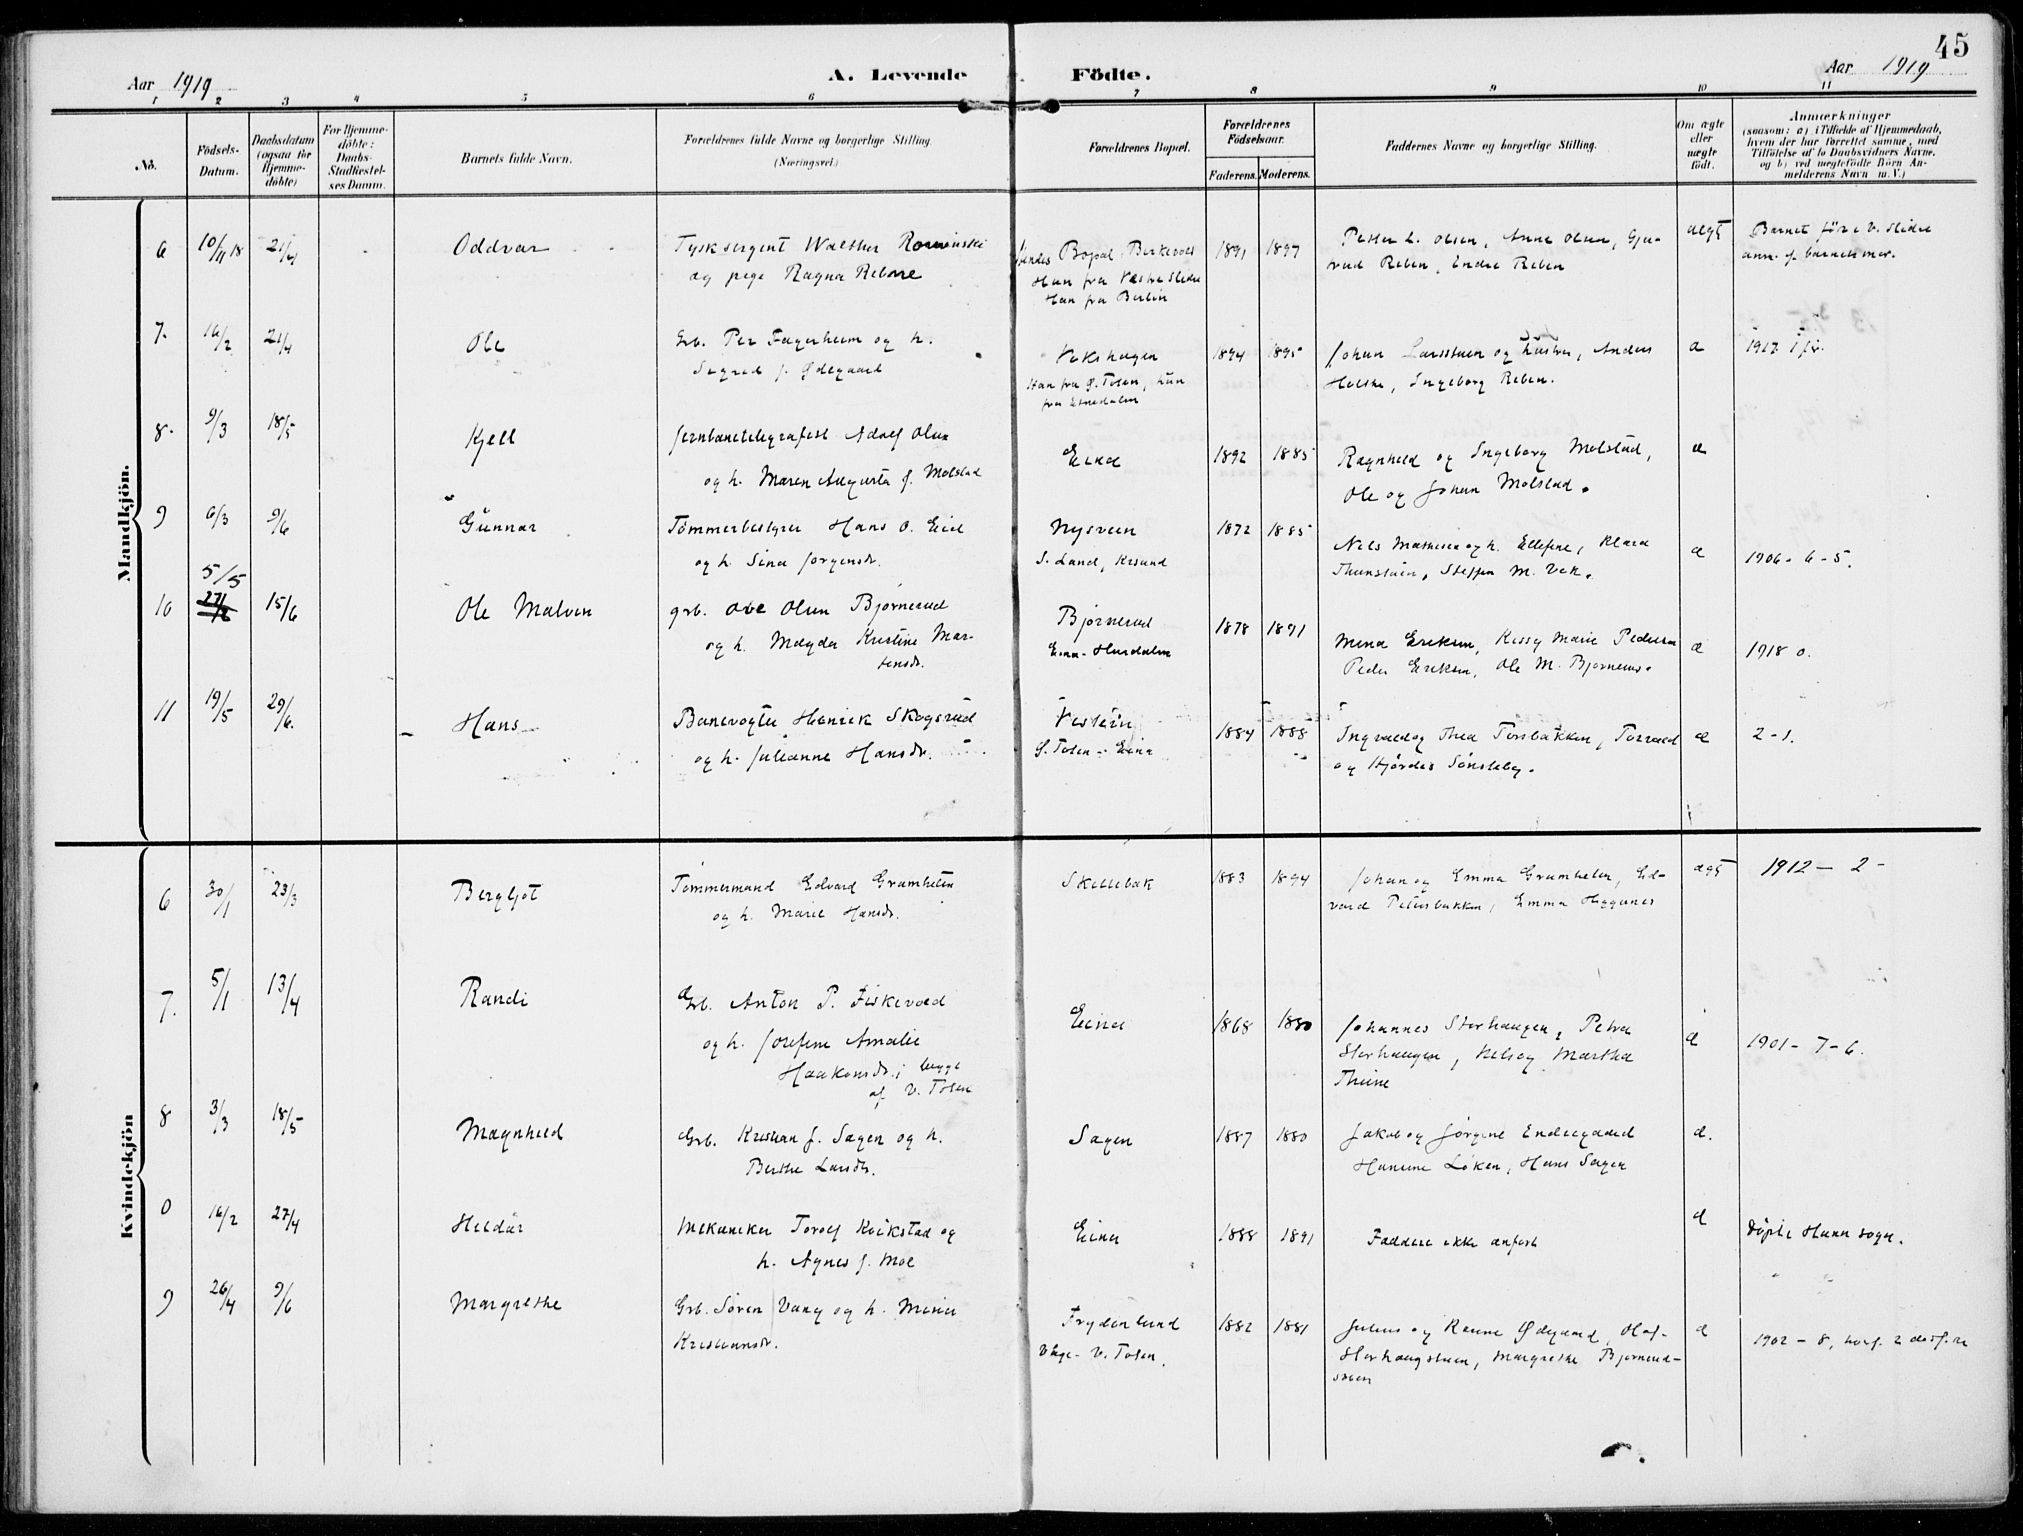 45
Aar 1919 A. Levende Födte. Aar 1919
1 2 3 4 5 6 7 8 9 10 11
No.
Födsels-
Datum.
Daabsdatum
(ogsaa for
Hjemme-
döbte)
For Hjemme-
döbte:
Daabs-
Stadfæstel-
ses Datum.
Barnets fulde Navn.
Forældrenes fulde Navne og borgerlige Stilling.
(Næringsvei.)
Forældrenes Bopæl.
Forældrenes
Födselsaar.
Faderens. Moderens.
Faddernes Navne og borgerlige Stilling.
Om ægte
eller
uægte
födt.
Anmærkninger
(saasom: a) i Tilfælde af Hjemmedaab,
hvem der har forrettet samme, med
Tilföielse af to Daabsvidners Navne,
og b) ved uægtefödte Börn An-
melderens Navn m. V.)
Mandkjön.
6 10/11 18 21/4 Oddvar
Tysk sergent Walther
og pige Ragna
Bopæl
Hun fra Vestre Slidre
Han fra Berlin
1891 1897
Petter L. Olsen, Anna Olsen, Gju-
rud Reben, Endre Reben
uegt
Barnet før i V. Slidre
anm. af barnets mor.
7. 16/2 21/4 Ole
Grb. Per Fagerheim og h.
Sigrid f. Ødegaard
Han fra Ø. Toten, hun
fra Etnedalen
1894 1895
Johan Larsstuen og hustru, Anders
Ingeborg Reben.
æ 1917
8. 9/3 18/5 Kjell
Jernbanetelegrafist Adolf Olsen
og h. Maren Augusta f. Molstad
Eina
1892 1885
Ragnhild og Ingeborg Molstad,
Ole og Johan Molstad.
æ
9 6/3 9/6 Gunnar
Tømmerbestyrer Hans O. Eid
og h. Sina Jørgensdr.
Nysveen
S. Land,
1872 1885
Nils Mathisen og h. Ellefine, Klara
Steffen M. Vek.
æ 1906 - 6 - 5.
10 5/5 15/6 Ole Malvin
grb. Ove Olsen Bjørnerud
og h. Magda Kristine Mar-
tensdr.
Bjørnerud
Eina - Hurdalen
1878 1891
Mina Eriksen, Marie Pedersen
Peder Eriksen, Ole M. Bjørnerud.
æ 1918 0.
11 19/5 29/6. Hans
Banevogter Henrik Skogsrud
og h. Julianne Hansdr.
Ø. Toten - Eina
1884 1888
Ingvald og Thea Torsbakken, Torvald
og Hjørdis Sønsteby.
æ 2 - 1.
Kvindekjön
6 30/1 23/3 Bergljot
Tømmermand Edvard Gramheten
og h. Marie Hansdr.
Skillebæk
1883 1894
Johan og Emma Gramheten, Ed-
vard Petersbakken, Emma Heggenes
ægt 1912 — 2 -
7. 5/1 13/4 Randi
Grb. Anton P. Fiskevold
og h. Josefine Amalie
Haakensdr.; begge
af V. Toten
Eina
1868 1880
Johannes Storhaugen, Petra
Storhaugen, Nels og Martha
Thune
æ 1901 - 7 - 6.
8 3/3 18/5 Magnhild
Grb. Kristian J. Sagen og h.
Berthe Larsdr.
Sagen
1887 1880
Jakob og Jørgine Endregaard
Hanne Løken, Hans Sagen
æ.
0 16/2 27/4 Hildur
Mekaniker Torolf Kvikstad og
h. Agnes f. Moe
Eina
1888 1891
Faddere ikke anført
æ
døpt i Hunn sogn.
9 26/4 9/6 Margrethe
Grb. Søren Vang og h. Mina
Kristiansdr.
Frydenlund
Vang - V. Toten.
1882 1881
Julius og Karine Ødegaard, Olaf
Storhaugstuen, Margrethe Bjørnerud-
stuen
æ
1902 - 8, 2